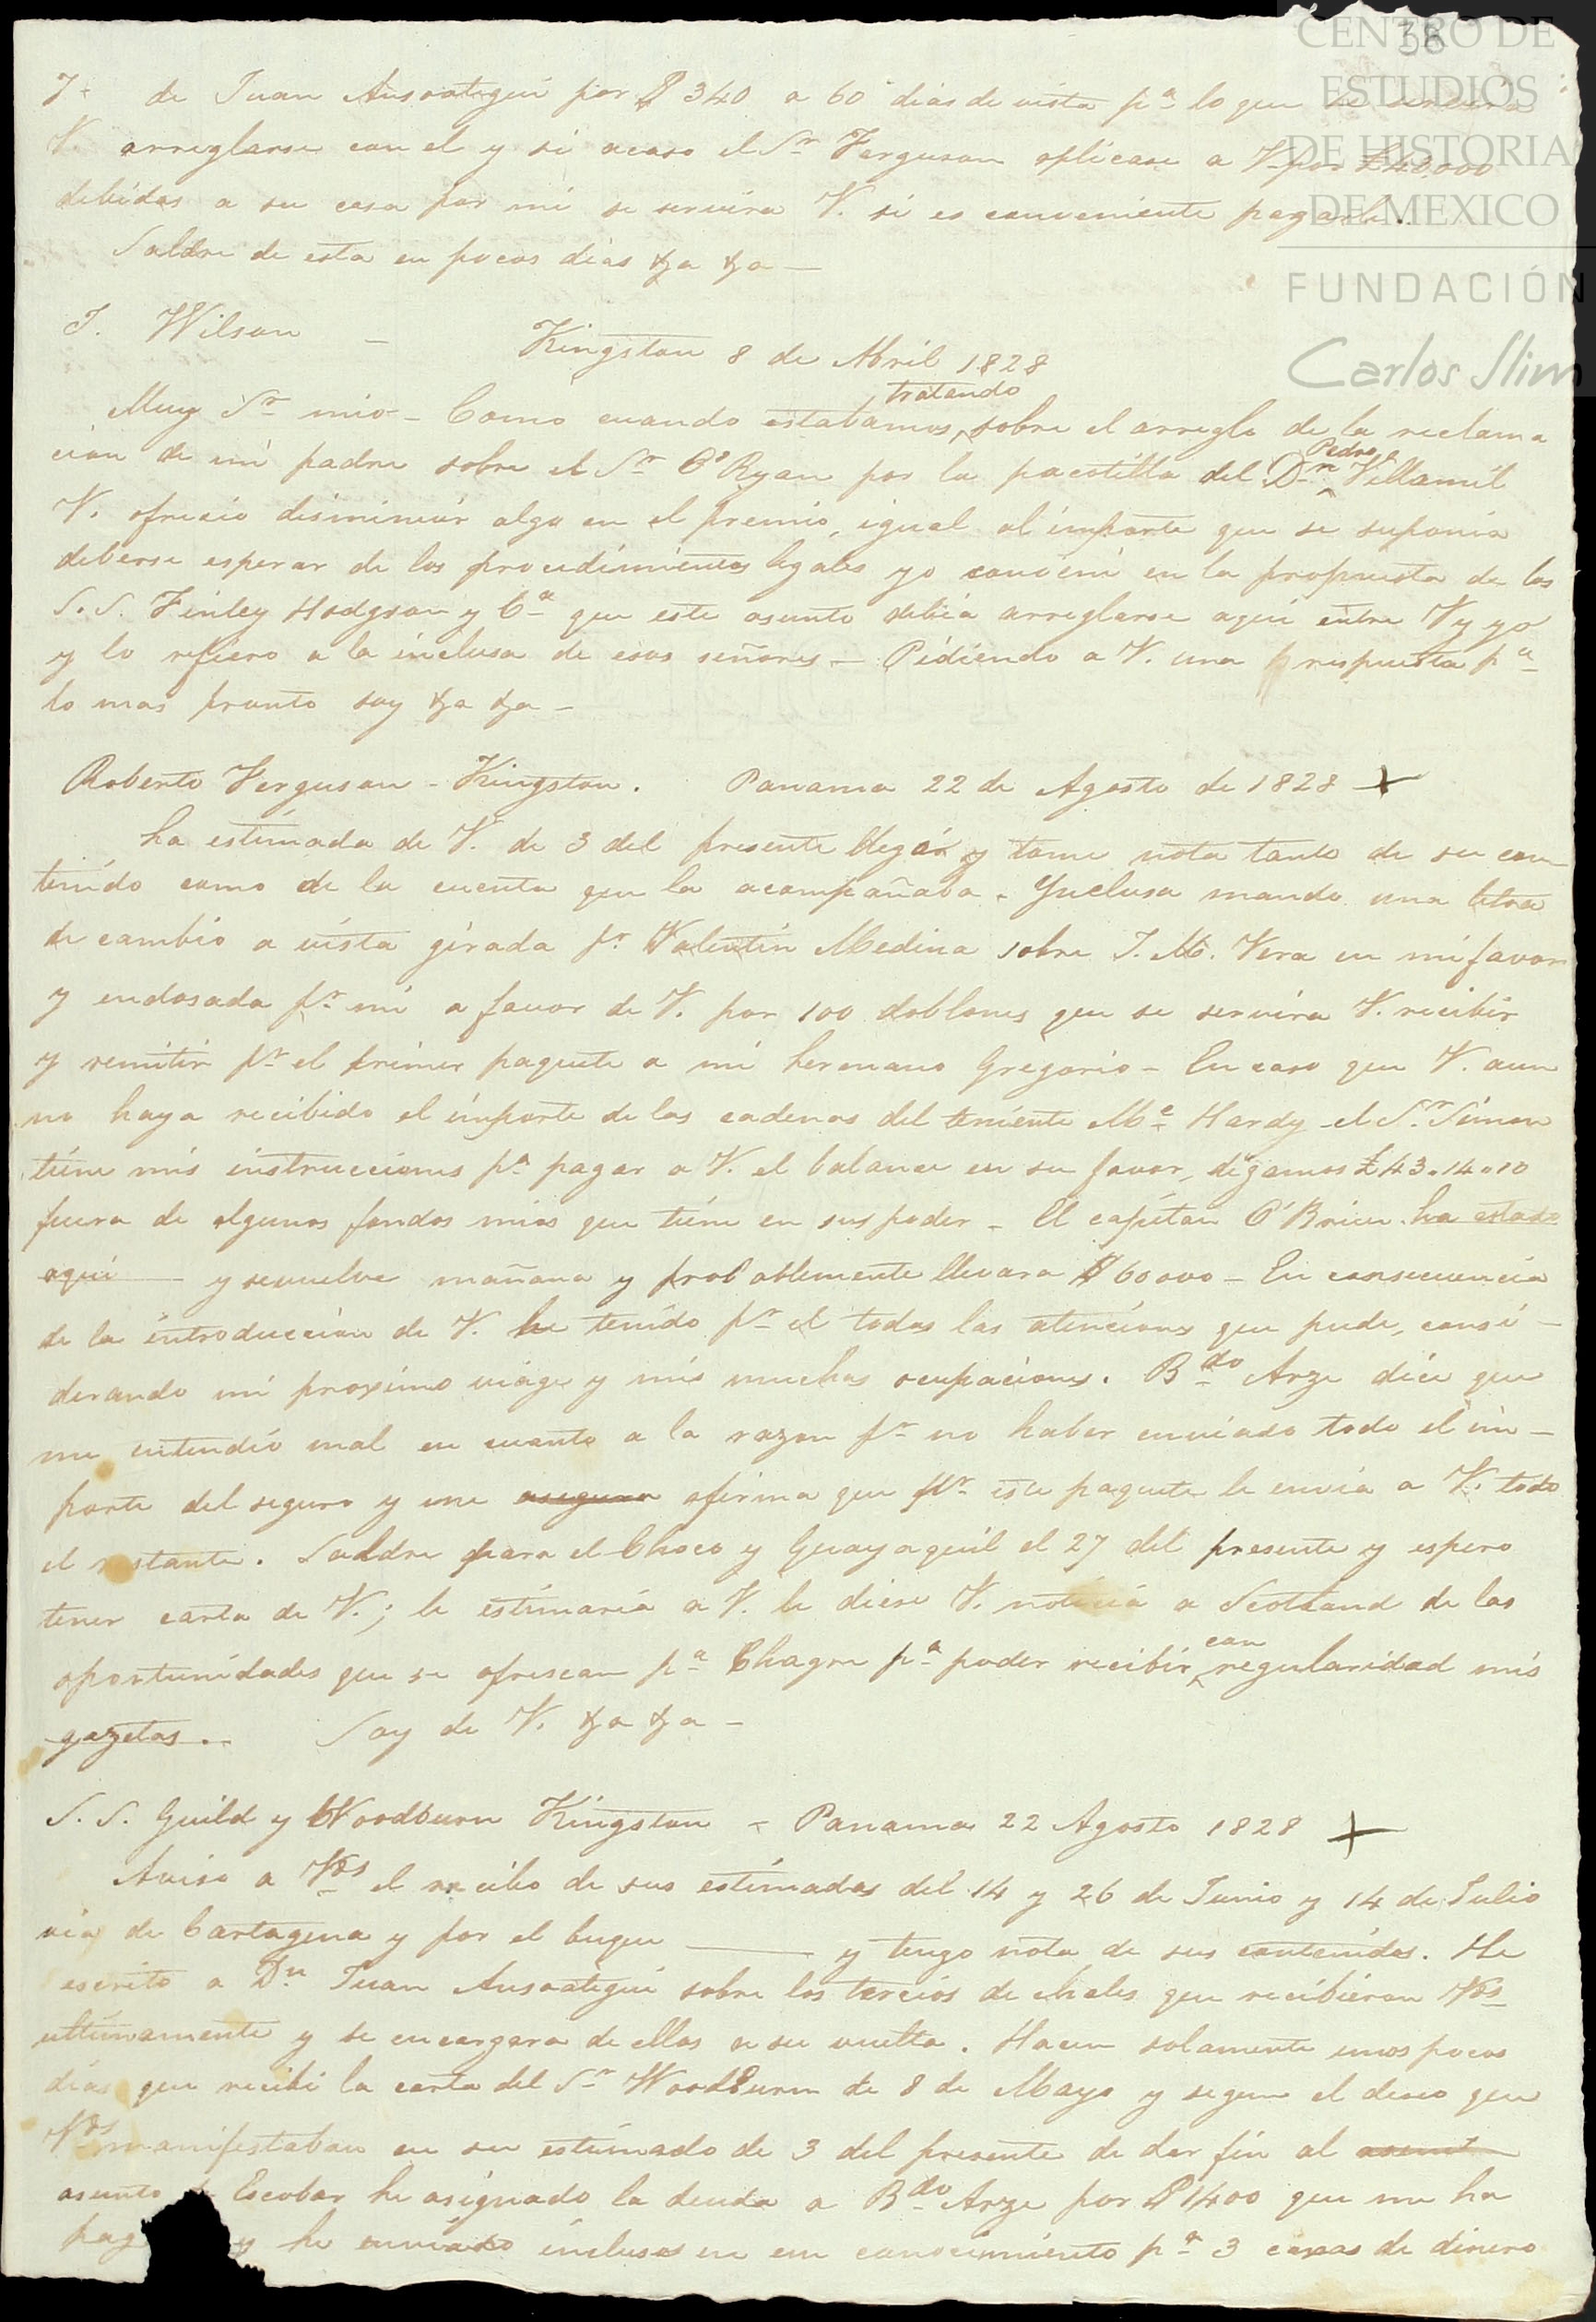 38
CENTRO DE
ESTUDIOS
DE HISTORIA
DE MEXICO
FUNDACIÓN
Carlos Slim
7- de Juan Ansoategui por $ 340 a 60 dias de vista pª lo que se servira
V. arreglarse con el y si acaso el Sr Ferguson aplicase a V. por £40,000
debidas a su casa por mi se servira V. si es conveniente pagarle..
Saldre de esta en pocos dias &a &a —
J. Wilson — Kingston 8 de Abril 1828
Muy Sr mio - Como cuando estabamos tratando sobre el arreglo de la reclama
cion de mi padre sobre el Sr O'Ryan por la pacotilla del Dn Pedro Villamil
V. ofrecio disminuir algo en el premio, igual al importe que se suponia
deberse esperar de los procedimientos legales yo convení en la propuesta de los
S.S. Finley Hodgson y Cª que este asunto debia arreglarse aqui entre V y yo
y lo refiero a la inclusa de esos señores — Pidiendo a V. una respuesta pª
lo mas pronto soy &a &a -
Roberto Ferguson - Kingston. Panama 22 de Agosto de 1828 +
La estimada de V. de 3 del presente llegó y tome nota tanto de su con
tenido como de la cuenta que la acompañaba. Ynclusa mando una letra
de cambio a vista girada pr Valentin Medina sobre J. M. Vera en mi favor
y endosada pr mi a favor de V. por 100 doblones que se servira V. recibir
y remitir pr el primer paquete a mi hermano Gregorio - En caso que V. aun
no haya recibido el importe de las cadenas del teniente Mc Hardy el Sr Simon
tiene mis instrucciones pª pagar a V. el balance en su favor, digamos £43.14.10
fuera de algunos fondos mios que tiene en su poder - El capitan O'Brien ha estado
aqui — y se vuelve mañana y probablemente llevara $ 60000 - En consecuencia
de la introduccion de V. he tenido pr el todas las atenciones que pude, consi-
derando mi proximo viage y mis muchas ocupaciones. Bdo Arze dice que
me entendió mal en cuanto a la razon pr no haber enviado todo el im-
porte del seguro y me asegura afirma que pr este paquete le envia a V. todo
el restante. Saldre para el Choco y Guayaquil el 27 del presente y espero
tener carta de V.; le estimaria a V. le diese V. noticia a Scotland de las
oportunidades que se ofrescan pª Chagre pª poder recibir con regularidad mis
gazetas.. Soy de V. &a &a -
S.S. Guild y Woodburn Kingston - Panama 22 Agosto 1828 +
Aviso a Vds el recibo de sus estimadas del 14 y 26 de Junio y 14 de Julio
via de Cartagena y por el buque ——— y tengo nota de sus contenidos. He
escrito a Dn Juan Ansoategui sobre los tercios de chales que recibieron Vds
ultimamente y se encargara de ellos a su vuelta. Hacen solamente unos pocos
dias que recibi la carta del Sr Woodburn de 8 de Mayo y segun el deseo que
Vds manifestaban en su estimado de 3 del presente de dar fin al asunt
asunto Escobar he asignado la deuda a Bdo Arze por $1400 que me ha
pag y he enviado inclusos en un conocimiento pª 3 casas de dinero